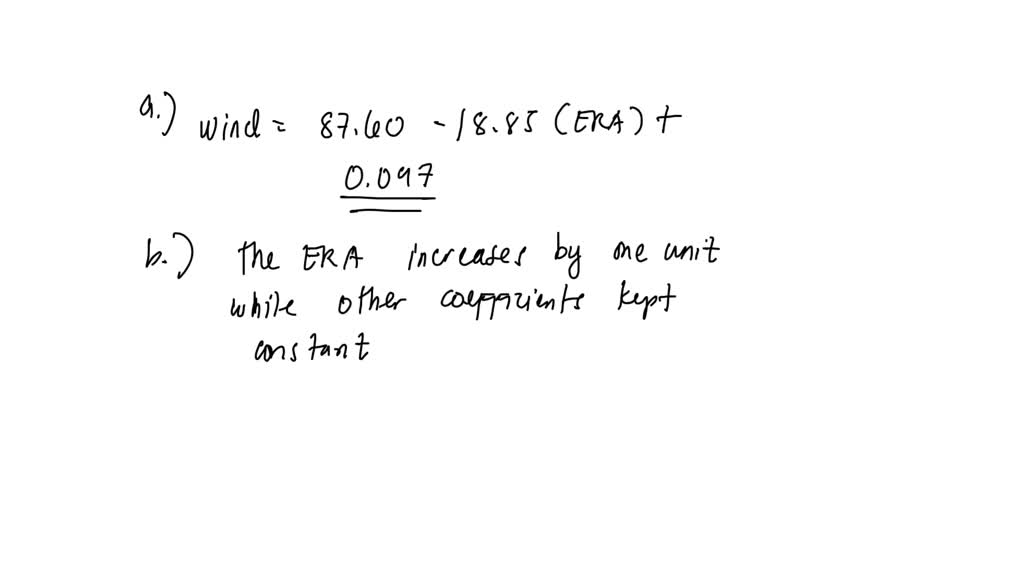 a.) wind = 87.60 - 18.85 (ERA) +
0.097
b.) The ERA increases by one unit
while other coefficients kept
constant